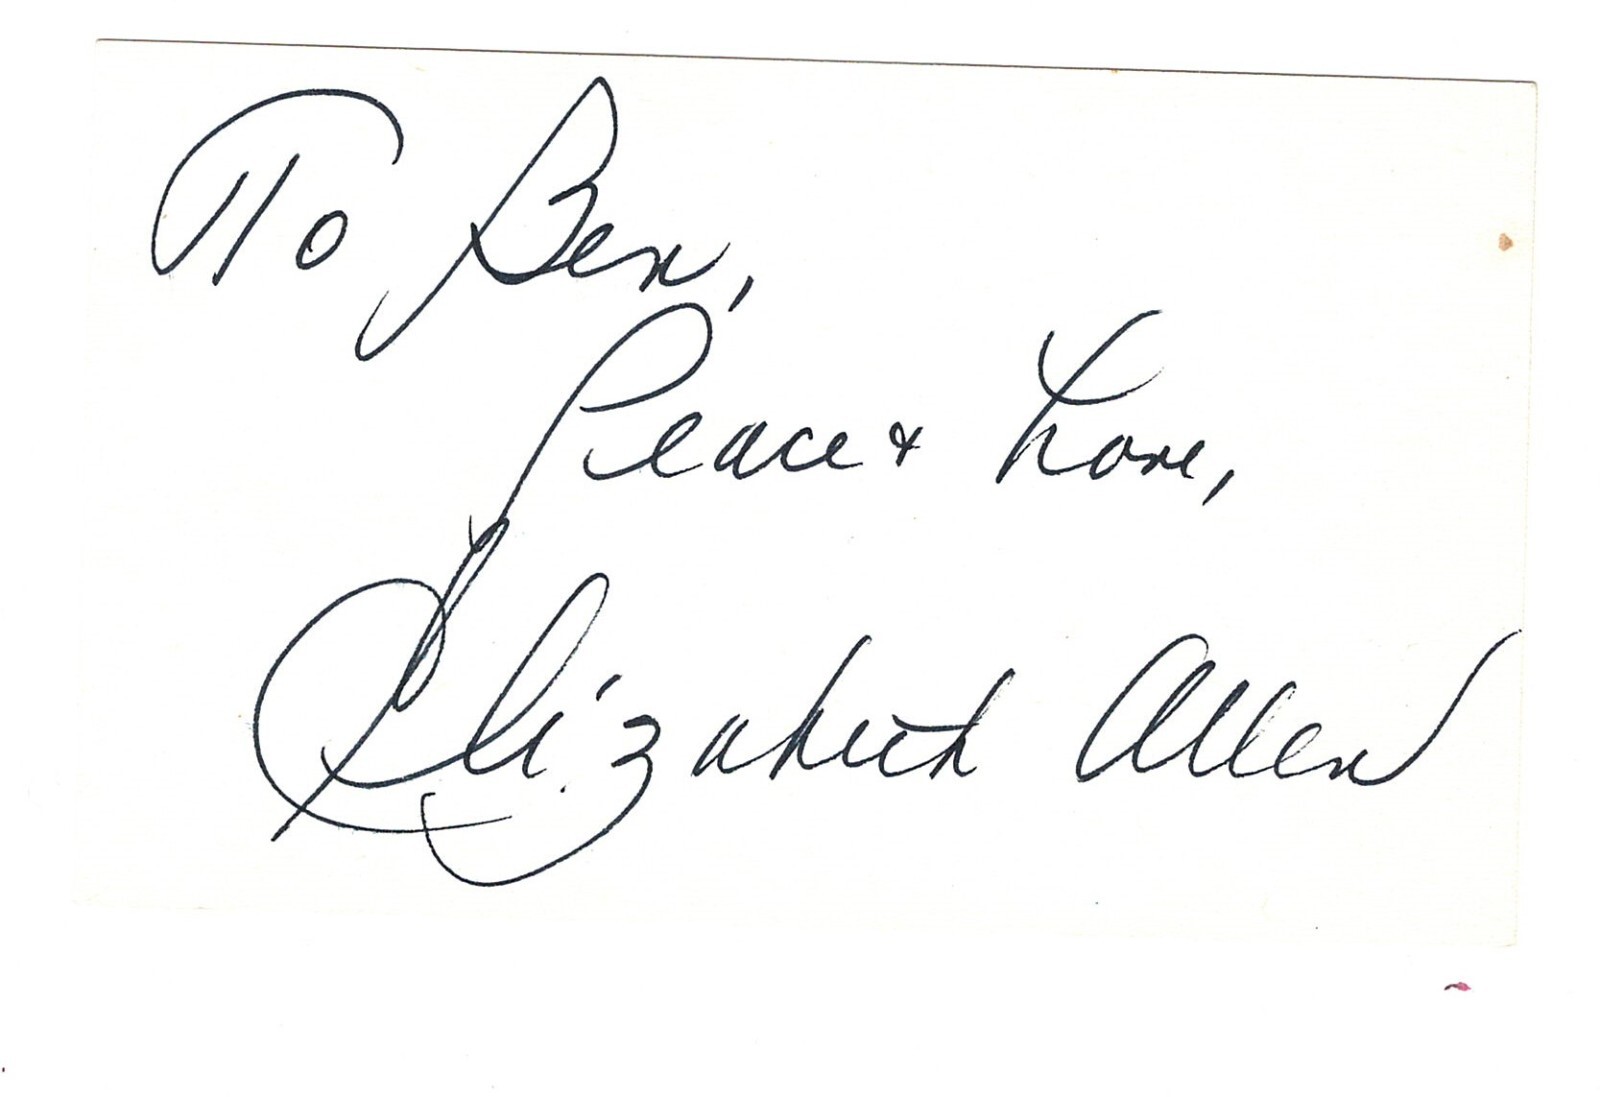 To Ben,
Peace & Love,
Elizabeth Allen